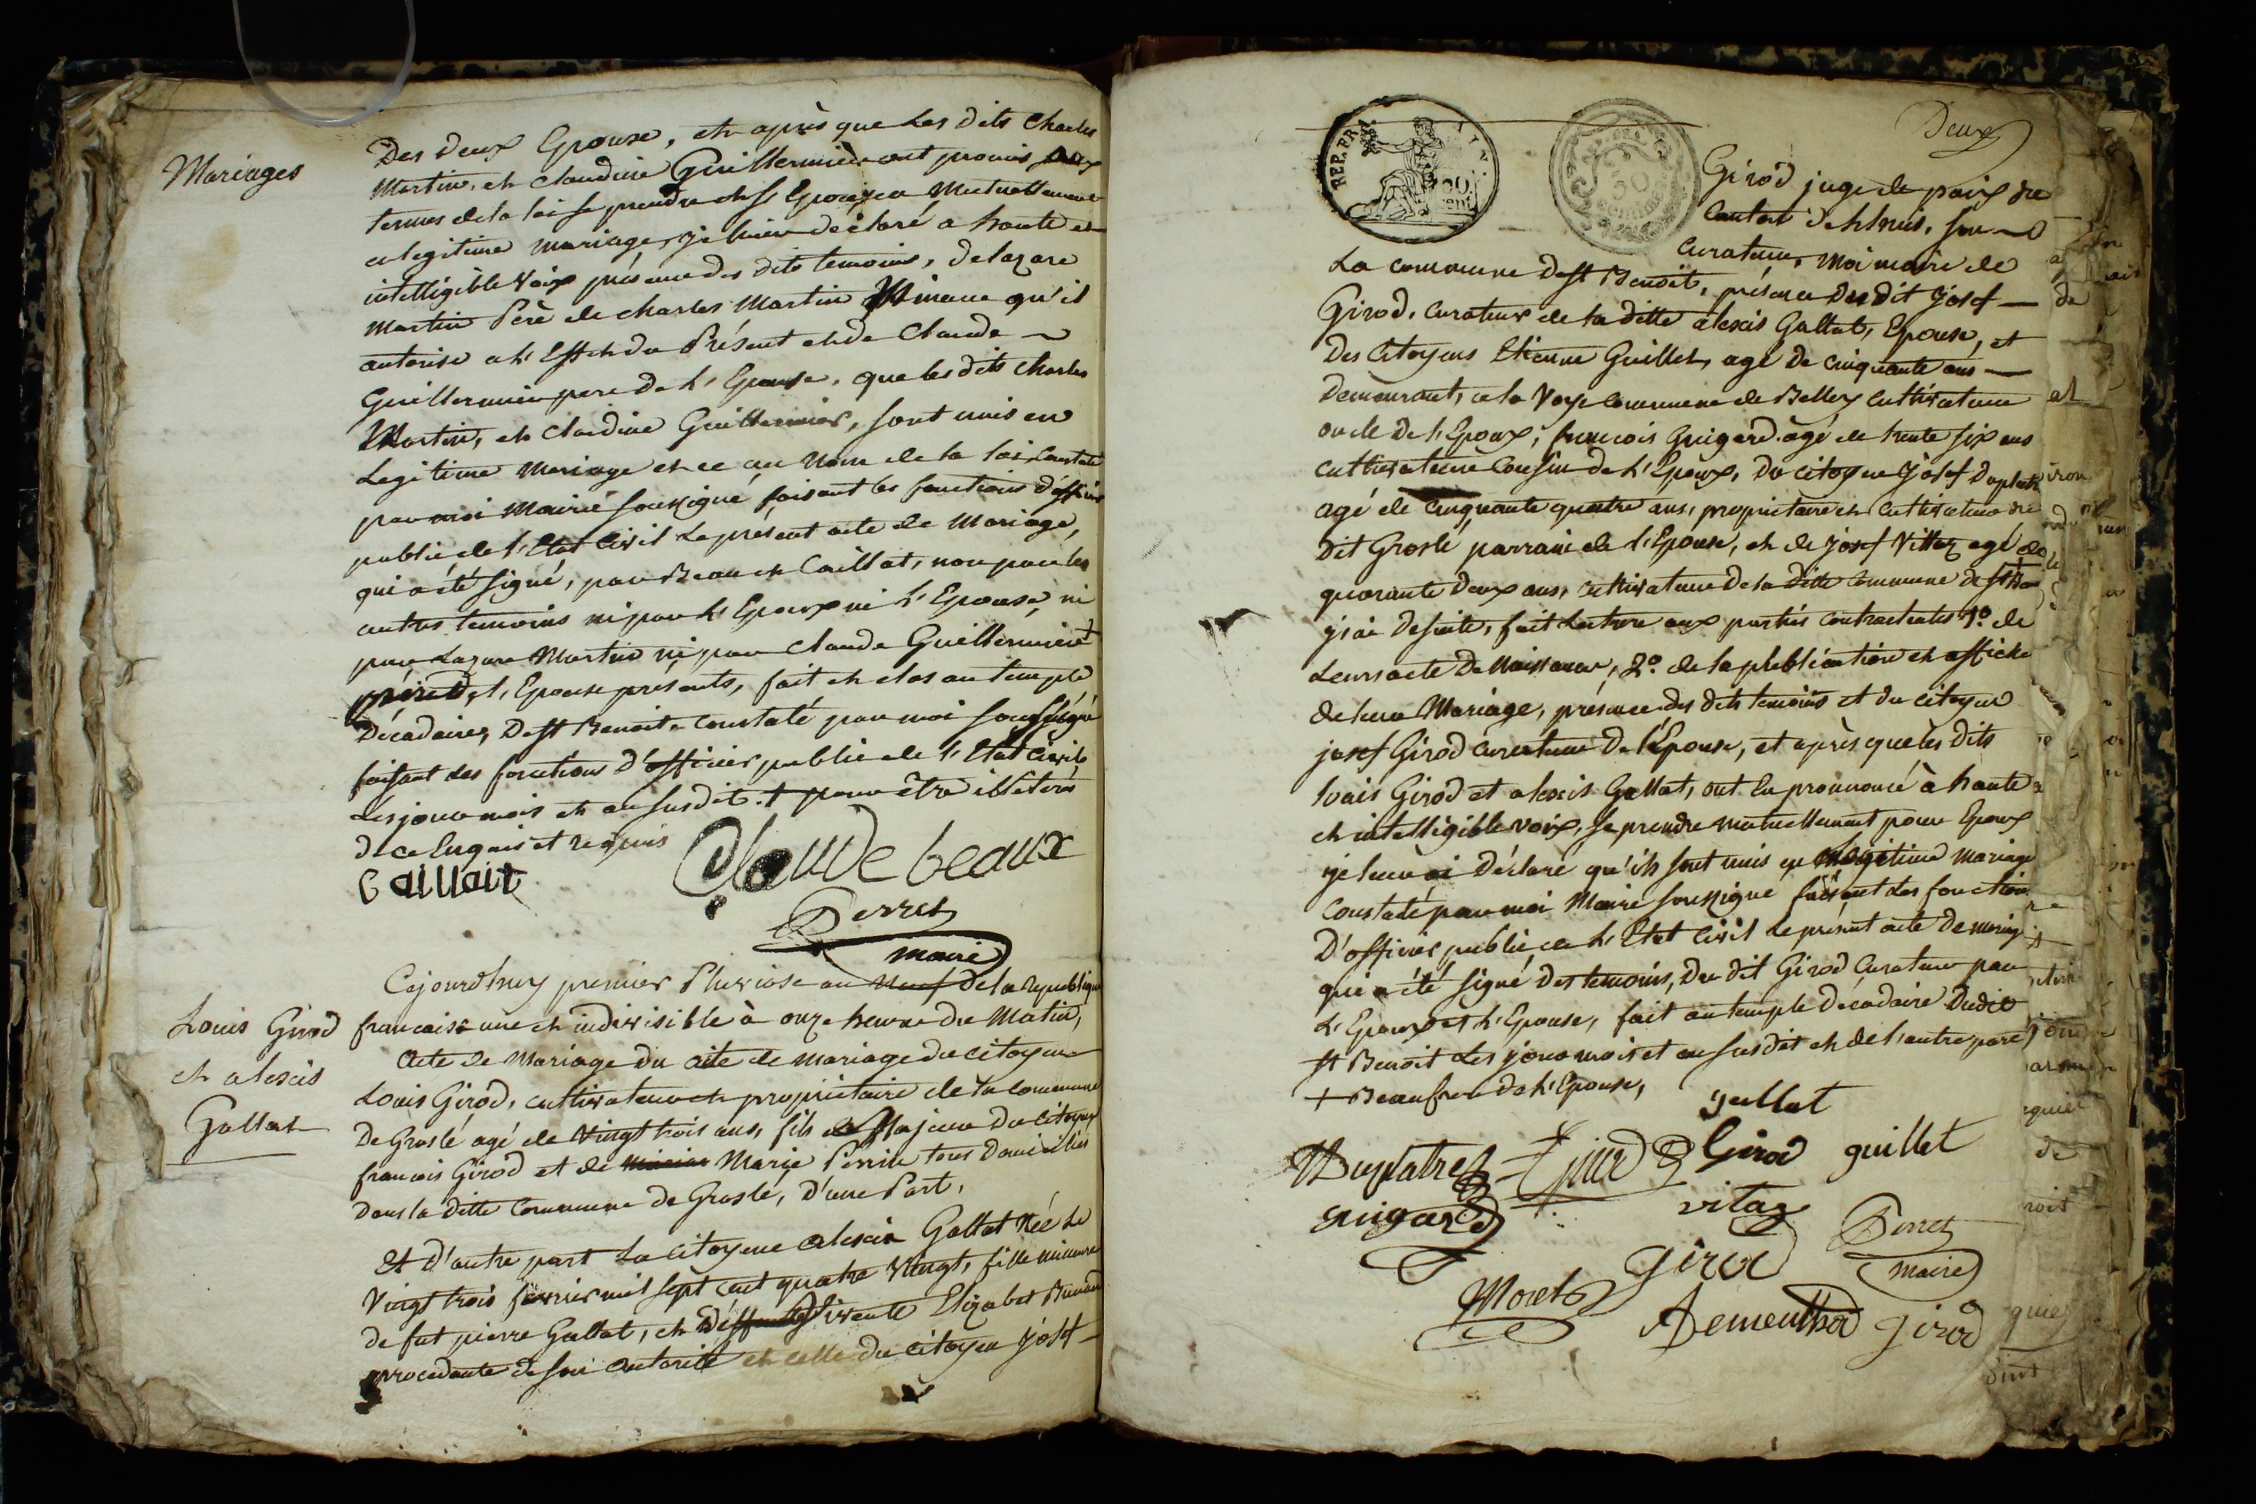 Mariages
Des deux Epouse, et après que Les dits Charles
Martin, et Claudine Guillermier ont promis aux
termes de la loi se prendre chefs Epoux en Mutuellement
en legitime mariage, je leur déclaré a haute et
intelligible Voix présence des dits temoins, de lazare
Martin Père de charles Martin Mineur qu'il
autorise a l'Effet du Présent et de Claude
Guillermier pere de l'Epouse, que les dits Charles
Martin, et Claudine Guillermier, sont unis en
Legitime Mariage et ce au Nom de la loi, Constaté
par moi Maire soussigné faisant les fonctions d'officier
public de l'Etat Civil Le présent acte de Mariage,
qui a été signé, par Beau et Caillat, non par les
autres temoins ni par l'Epoux ni l'Epouse, ni
par Lazare Martin ni par Claude Guillermier +
père de l'Epouse présents, fait et clos au temple
Décadaire, De St Benoit Constaté par moi soussigné
faisant les fonctions d'officier public de l'Etat Civil
Les jour mois et an susdit. + pour être illetérés
de ce Enquis et requis
Caillait
Claude beaux
Perret
maire
Louis Girod
et alexis
Gallat
Cejourdhuy premier Pluviose an Neuf de la Republique
francaise une et indivisible à onze heure du Matin,
Acte de Mariage du acte de mariage du citoyen
Louis Girod, cultivateur et propriétaire de la Commune
De Groslé agé de Vingt trois ans, fils Majeur du Citoyen
francois Girod et de Marie Perrin tous Domicilies
Dans la ditte Commune de Groslé, D'une Part,
Et D'autre part La Citoyene alexis Gallat Née Le
Vingt trois fevrier mil sept cent quatre Vingt, fille mineure
de fut pierre Gallat, et vivente Elizabet
procedante de son Autorité et celle du Citoyen Josef
REP. FRA.
Deux
Girod juge de paix du
Canton de Lhuis, son
Curateur, Moi maire de
La commune de St Benoit, présence Du dit Josef
Girod, Curateur de la ditte alexis Gallat, Epouse, et
Des Citoyens Etienne Guillet, agé de Cinquante ans
Demeurant, a la Voye Commune de Belley Cultivateur
oncle De l'Epoux, francois Guigard agé de trente six ans
cultivateur Cousin de l'Epoux, Du Citoyen Josef Duplatre
agé de Cinquante quatre ans, propriétaire et Cultivateur du
Dit Groslé parrain de l'Epouse, et de Josef Vittoz agé de
quarante Deux ans, Cultivateur De la Ditte Commune de St Ben +
j'ai De suite, fait Lecture aux parties Contractantes 1º. de
Leurs acte De Naissance, 2º. de la publication et affiche
de leur Mariage, présence des dits temoins et du Citoyen
josef Girod Curateur De l'Epouse, et après que les dits
louis Girod et alexis Gallat, ont Eu prononcé à haute
et intelligible voix, se prendre Mutuellement pour Epoux
je leur ai Déclaré qu'ils sont unis en Legitime Mariage
Constaté par moi Maire soussigné faisant Les fonctions
D'officier public de l'Etat Civil Le présent acte De mariage
qui a été signé Des temoins, Du dit Girod Curateur par
L'Epoux et l'Epouse, fait au temple décadaire Dudit
St Benoit Les jour mois et an susdit et de l'autre part
+ Beaufrere de l'Epouse,
gallat
Duplatre Girod guillet
guigard vitoz
Girod Perret
maire
Moret Demeuthon girod